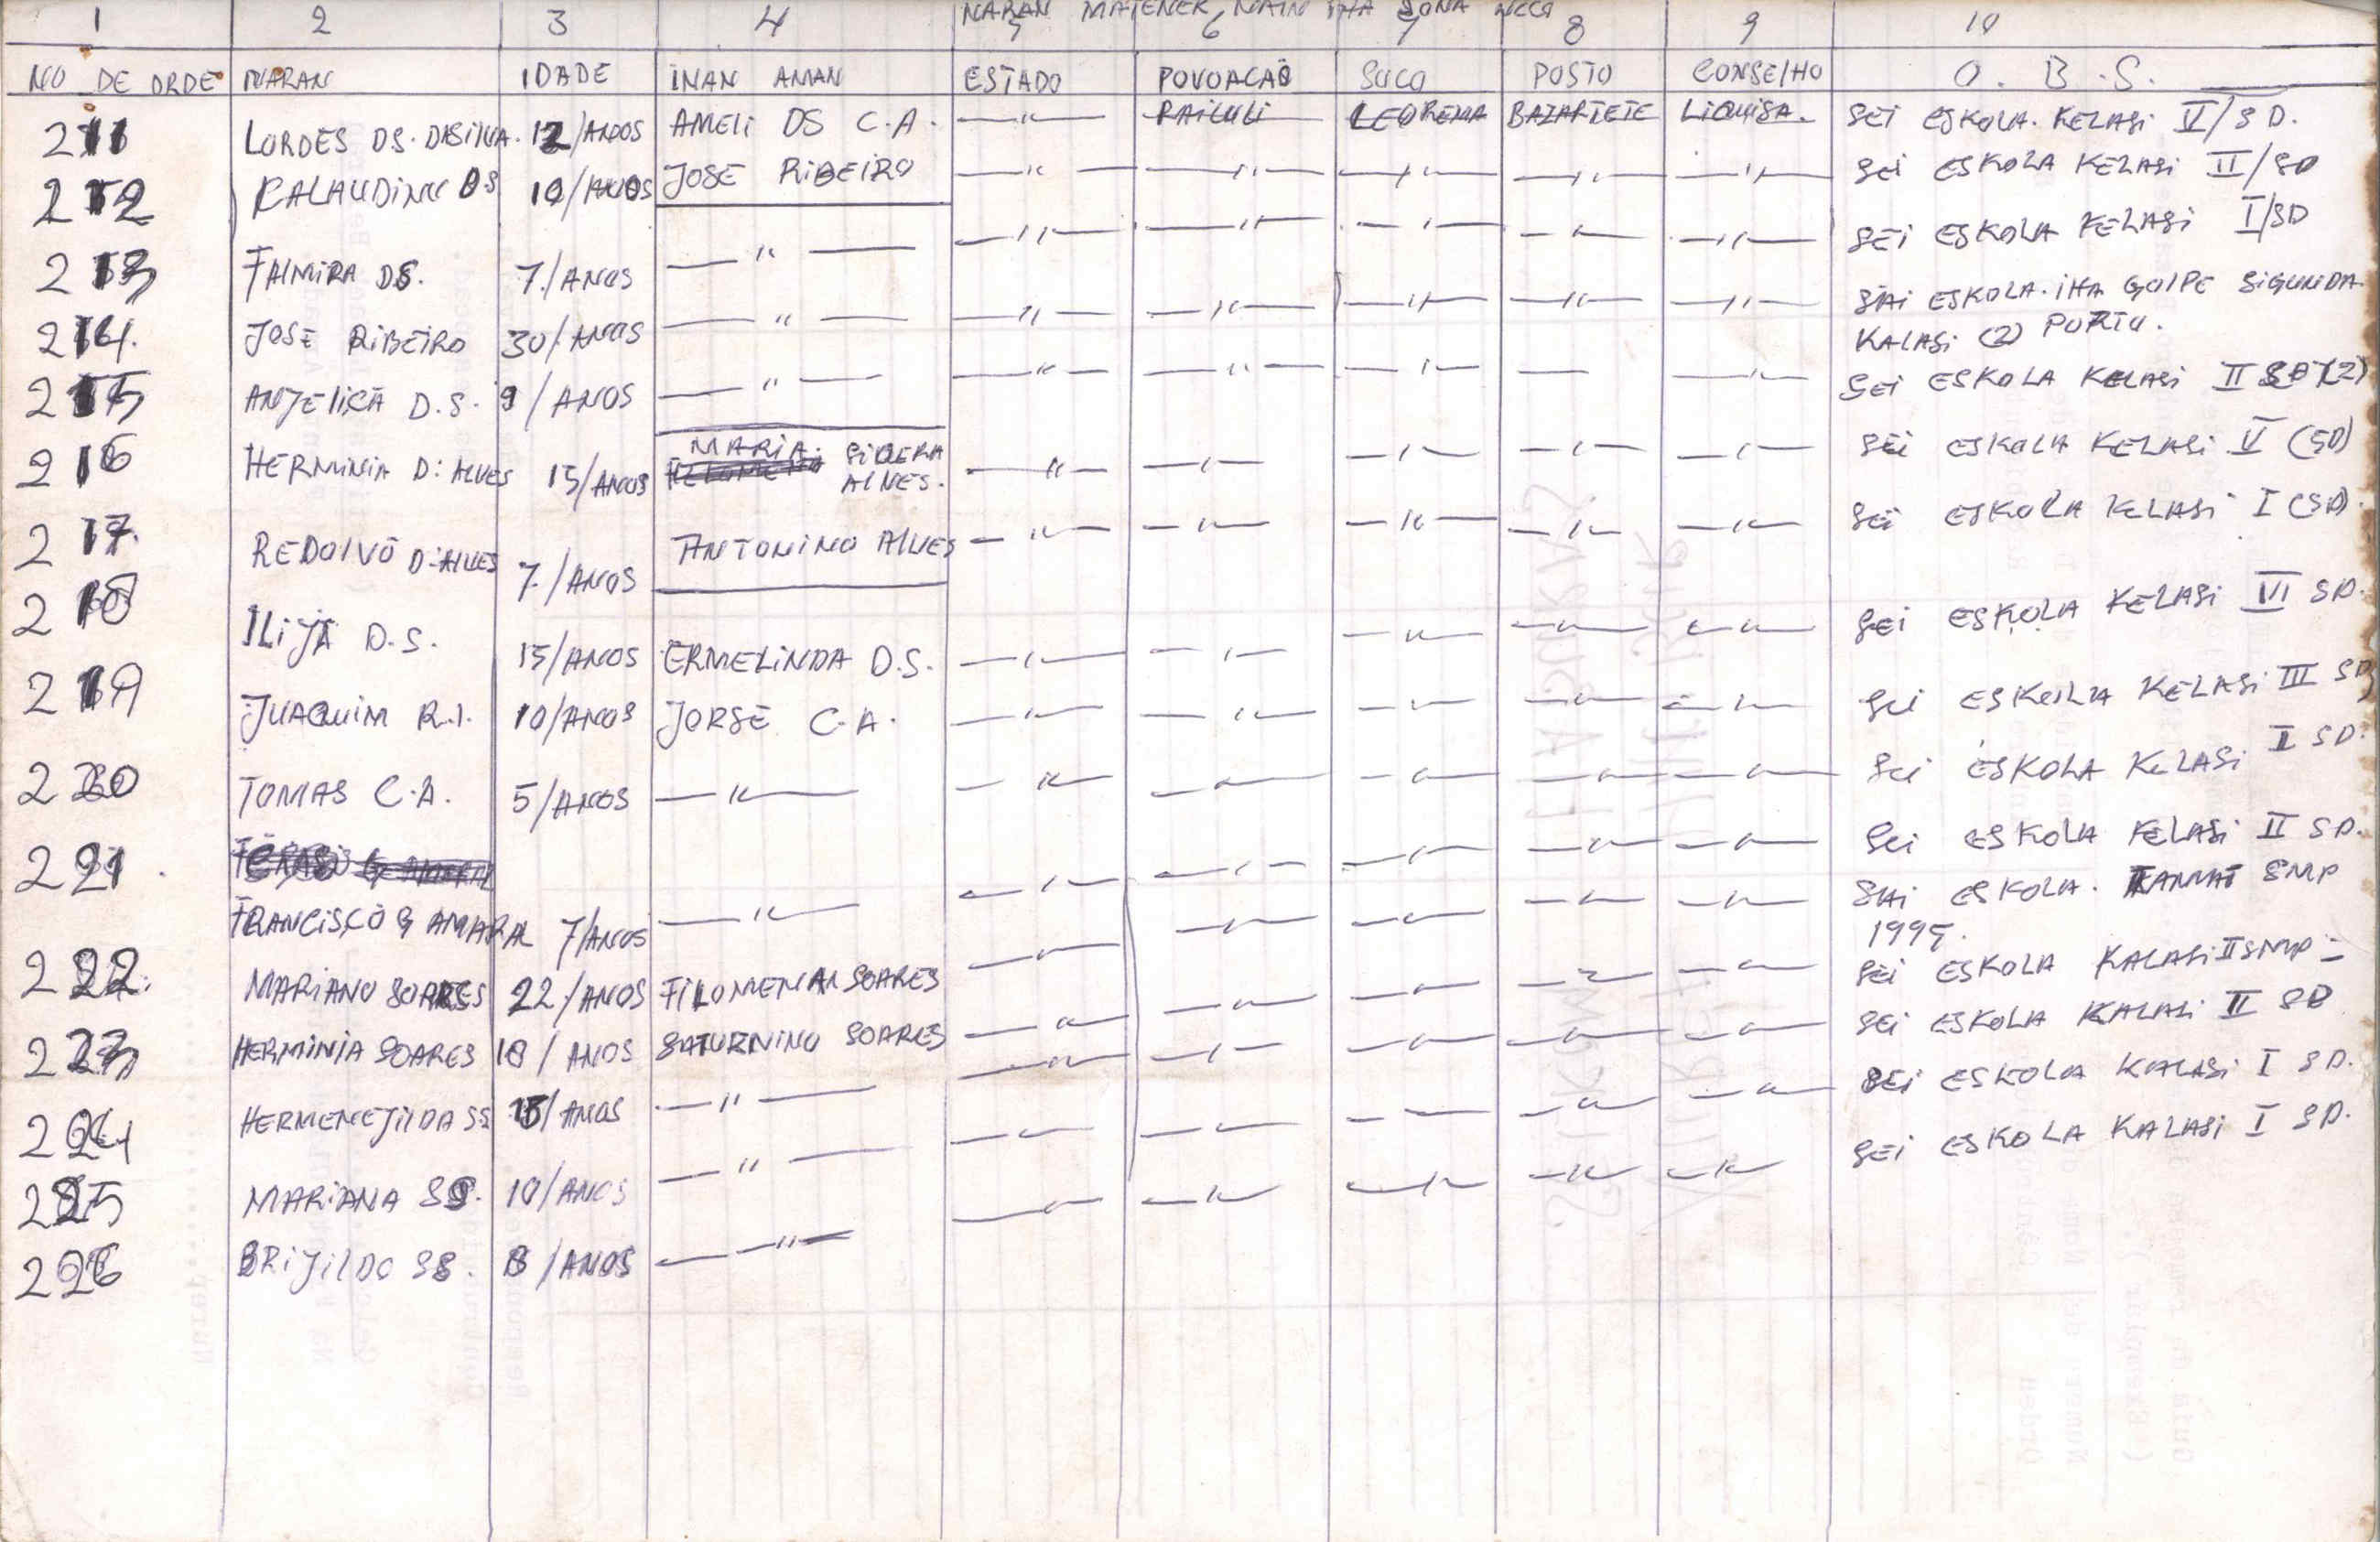 NARAN MATENEK NAIN IHA ZONA
1 2 3 4 5 6 7 8 9 10
NO DE ORDE NARAN IDADE INAN AMAN ESTADO POVOACAÕ SUCO POSTO CONSELHO O. B. S.
211 LORDES DS. DASILVA. 12/ANOS AMELI DS C.A. —"— RAILULI LEOREMA BAZARTETE LIQUISA. SEI ESKOLA. KELASI V/SD.
212 KALAUDINU DS 10/ANOS JOSE RIBEIRO —"— —"— —"— —"— —"— SEI ESKOLA KELASI II/SD
213 FALMIRA DS. 7./ANOS —"— —"— —"— —"— —"— —"— SEI ESKOLA KELASI I/SD
214. JOSE RIBEIRO 30/ANOS —"— —"— —"— —"— —"— —"— SAI ESKOLA. IHA GOLPE SIGUNDA.
KALASI (2) PORTU.
215 ANJELICA D.S. 9/ANOS —"— —"— —"— —"— — —"— SEI ESKOLA KELASI II SD (2)
216 HERMINIA D: ALVES 15/ANOS MARIA. SIDERA
ALVES. —"— —"— —"— —"— —"— SEI ESKOLA KELASI V (SD)
217. REDOLVO D-ALVES 7./ANOS ANTONINO ALVES —"— —"— —"— —"— —"— SEI ESKOLA KELASI I (SD).
218 ILIJA D.S. 15/ANOS ERMELINDA D.S. —"— —"— —"— —"— —"— SEI ESKOLA KELASI VI SD.
219 JUAQUIM R.I. 10/ANOS JORSE C.A. —"— —"— —"— —"— —"— SEI ESKOLA KELASI III SD
220 TOMAS C.A. 5/ANOS —"— —"— —"— —"— —"— —"— SEI ESKOLA KELASI I SD.
221. —"— —"— —"— —"— —"— SEI ESKOLA KELASI II SD.
FRANCISCO G AMARAL 7/ANOS —"—
222. MARIANO SOARES 22/ANOS FILOMENA SOARES —"— —"— —"— —"— —"— SAI ESKOLA. TAMAT SMP
1995.
223 HERMINIA SOARES 18/ANOS SATURNINO SOARES —"— —"— —"— —"— —"— SEI ESKOLA KALASI II SMP-
224 HERMENEJILDA SS 15/ANOS —"— —"— —"— —"— —"— —"— SEI ESKOLA KALASI II SD
225 MARIANA SS. 10/ANOS —"— —"— —"— — — —"— —"— SEI ESKOLA KALASI I SD.
226 BRIJILDO SS. 8/ANOS —"— —"— —"— —"— —"— —"— SEI ESKOLA KALASI I SD.